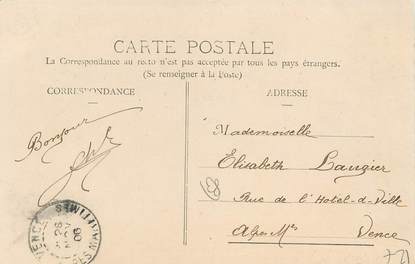 CARTE POSTALE
La Correspondance au recto n'est pas acceptée par tous les pays étrangers.
(Se renseigner à la Poste)
CORRESPONDANCE
ADRESSE
Bonjour
Mademoiselle
Elisabeth Laugier
Rue de l'Hotel-d-Ville
Alpes Mes Vence
VENCE
ALPES MARITIMES
26
06